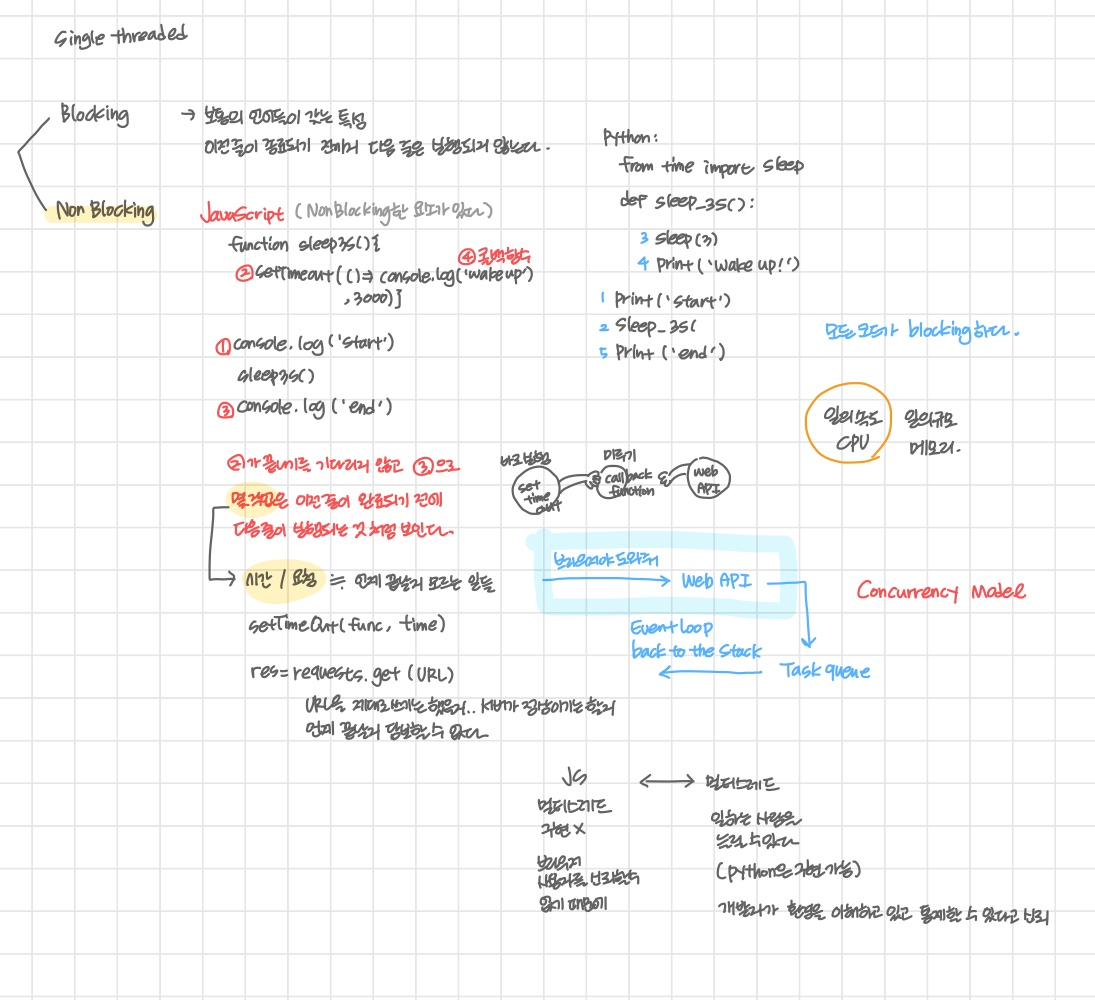 Single threaded
Blocking → 보통의 언어들이 갖는 특성
이전줄이 종료되기 전까지 다음 줄은 실행되지 않는다.
Non Blocking
JavaScript (NonBlocking한 요소가 있다)
function sleep3s(){
④콜백함수
②setTimeout(()=> console.log('wake up')
,3000)}
①console.log('start')
sleep3s()
③console.log('end')
②가 끝나기를 기다리지 않고 ③으로
몇가지은 이전줄이 완료되기 전에
다음줄이 실행되는 것처럼 보인다.
시간 / 요청 ≒ 언제 끝날지 모르는 일들
setTimeOut(func, time)
res=requests.get(URL)
URL을 제대로쓰기는했을지.. 서버가 정상이기는할지
언제 끝날지 담보할수 없다
Python:
from time import sleep
def sleep_3s():
3 sleep(3)
4 print('wake up!')
1 print('start')
2 sleep_3s(
5 print('end')
모든코드가 blocking하다.
일의속도
CPU
일의규모
메모리.
바로실행
set
time
out
미루기
callback
function
web
API
브라우저야 도와줘
Web API
Event loop
back to the Stack
Task queue
Concurrency Model
JS ↔ 멀티스레드
멀티스레드
구현 X
브라우저
사용자를 신뢰할수
없기 때문에
일하는 사람을
늘릴 수있다
(python은구현가능)
개발자가 환경을 이해하고 있고 통제할 수 있다고 신뢰